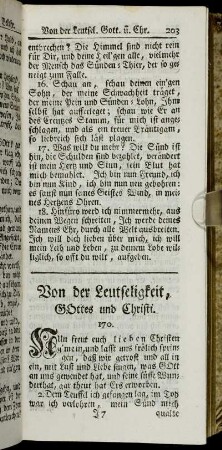 Von der Leutsel. Gott. ũ. Chr. 203
entbrechen? Die Himmel sind nicht rein
für Dir, und deine Heil'gen alle, vielmehr
der Mensch das Sünden-Thier, der so ge-
neigt zum Falle.
16. Schau an, schau deinen ein'gen
Sohn, der meine Schwachheit träget,
der meine Pein und Sünden-Lohn, Ihm
selbst hat aufferleget; schau wie Er an
des Creutzes Stamm, für mich ist ange-
schlagen, und als ein treuer
so liebreich sich lässt plagen.
17. Was wilt du mehr? Die Sünd ist
hin, die Schulden sind bezahlet, verändert
ist mein Hertz und Sinn, sein Blut hat
mich bemahlet. Ich bin nun Freund, ich
bin nun Kind, ich bin nun neu gebohren:
es saust nun seines Geistes Wind, in mei-
nes Hertzens Ohren.
18. Hinfüro werd ich nimmermehr, aus
deinen Wegen schreiten, Ich werde deines
Namens Ehr, durch alle Welt ausbreiten.
Ich will dich lieben über mich, ich will
mein Leib und Leben, zu deinem Lobe wil-
liglich, so offt du wilt, aufgeben.
Von der Leutseligkeit,
GOttes und Christi.
170.
NUn freut euch lieben Christen
g'mein, und lasst uns frölich sprin-
gen, daß wir getrost und all in
ein, mit Lust und Liebe singen, was GOtt
an uns gewendet hat, und seine süsse Wun-
derthat, gar theur hat Ers erworben.
2. Dem Teuffel ich gefangen lag, im Tod
war ich verlohren, mein Sünd mich
J 7 quälte